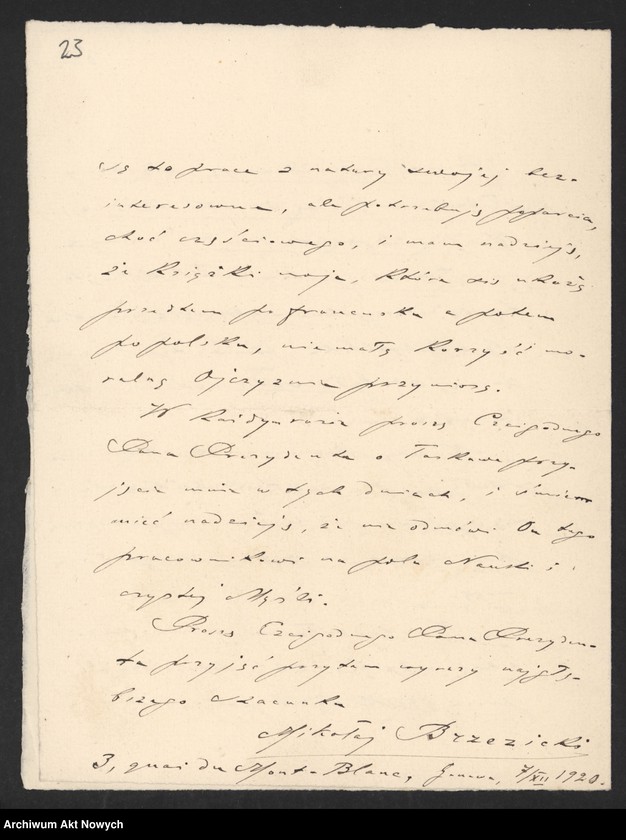 23
są to prace z natury swojej bez-
interesowne, ale potrzebują poparcia,
choć częściowego, i mam nadzieję,
że książki moje, które się ukażą
przedtem po francusku a potem
po polsku, nie małą korzyść mo-
ralną Ojczyznie przyniosą.
W każdym razie proszę Czcigodnego
Pana Prezydenta o łaskawe przy-
jęcie mnie w tych dniach, i śmiem
mieć nadzieję, że nie odmówi On tego
pracownikowi na polu Nauki i
czystej Myśli.
Proszę Czcigodnego Pana Prezyden-
ta przyjąć przytem wyrazy najgłę-
bszego szacunku
Mikołaj Brzezicki
3, quai du Mont-Blanc, Genewa, 7/XII 1920.
Archiwum Akt Nowych